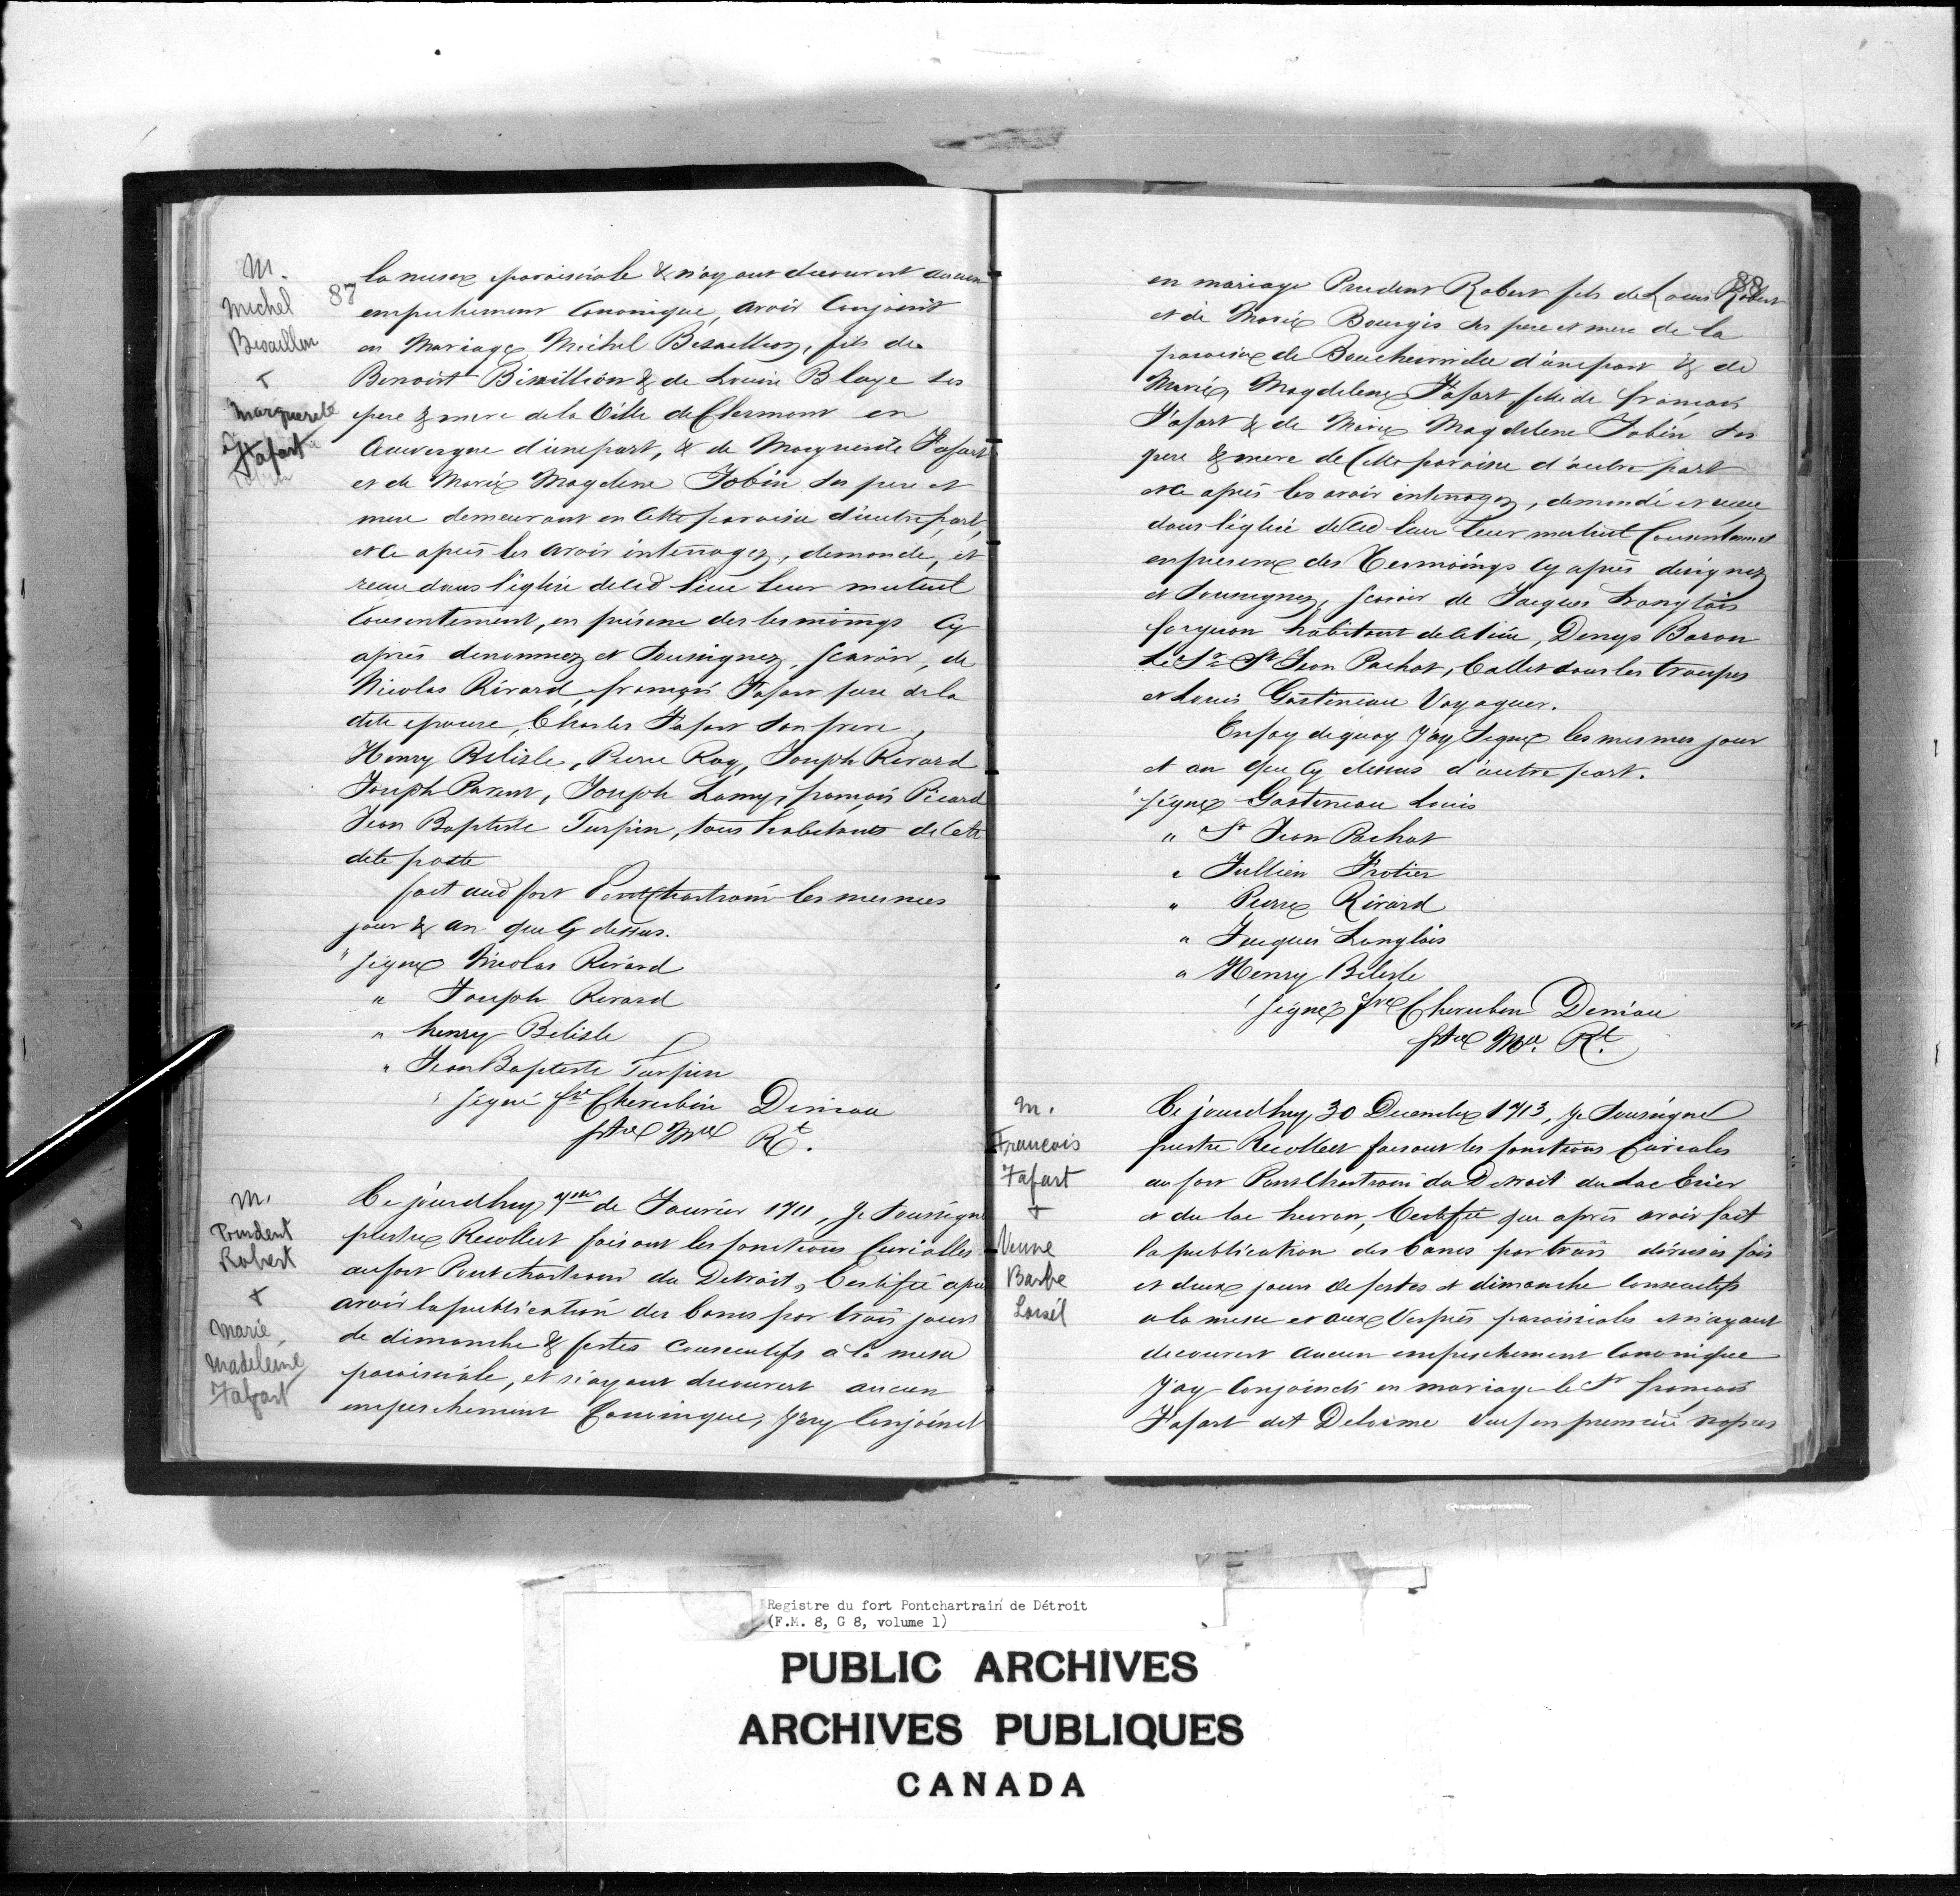 M.
Michel
Bisaillon
+
Marguerite
Fafart
87
la messe paroissiale & n'ayant decouvert aucun
empechement Canonique, avoir Conjoint
en Mariage Michel Bisaillion, fils de
Benoist Bisaillion & de Louise Blaye ses
pere & mere de la Ville de Clermont en
Auvergne d'une part, & de Marguerite Fafart
et de Marie Magdelene Jobin ses pere et
mere demeurant en Cette paroisse d'autre part,
et ce après les avoir interrogez, demandé, et
receu dans l'église dud lieu leur mutuel
Consentement, en présence des tesmoings Cy
après denommez et Soussignez, Scavoir, de
Nicolas Rivard, françois Fafart pere de la
dite epouse, Charles Fafart son frere,
Henry Belisle, Pierre Roy, Joseph Rivard
Joseph Parent, Joseph Lamy, françois Picard
Jean Baptiste Turpin, tous habitants de Cette
dite poste
fait aud fort Pontchartrain les mesmes
jour & an que Cy dessus.
" Signé Nicolas Rivard
" Joseph Rivard
" henry Belisle
" Jean Baptiste Turpin
" Signé fre Cherubin Deniau
ptre Mre Rt.
M.
Prudent
Robert
+
Marie
Madeleine
Fafart
Ce jourdhuy 7me de Janvier 1711, Je Soussigné
prestre Recollect faisant les fonctions Curialles
au fort Pontchartrain du Detroit, Certifie apres
avoir la publication des bancs par trois jours
de dimanche & festes Consecutifs a la messe
paroissiale, et n'ayant decouvert aucun
empeschement Canonique, J'ay Conjoinct
88
en mariage Prudent Robert fils de Louis Robert
et de Marie Bourgis ses pere et mere de la
paroisse de Boucherville d'une part & de
Marie Magdelene Fafart fille de françois
Fafart & de Marie Magdelene Jobin ses
pere & mere de Cette paroisse d'autre part
et ce après les avoir interrogez, demandé et receu
dans l'église dud lieu leur mutuel Consentement
en presence des Tesmoings Cy après designez
et Soussignez, Scavoir de Jacques Langlois
forgeron habitant de ce lieu, Denys Baron
Le Sr St Jean Pachot, Cadet dans les troupes
et Louis Gastineau Voyageur.
En foy de quoy J'ay Signé les mesmes jour
et an que Cy dessus d'autre part.
" Signé Gastineau Louis
" St Jean Pachot
" Jullien Frotier
" Pierre Rivard
" Jacques Langlois
" Henry Belisle
" Signé fre Cherubin Deniau
ptre Mre Rt.
M.
Francois
Fafart
+
Veuve
Barbe
Loisél
Ce jourdhuy 30 Decembre 1713, Je Soussigné
prestre Recollect faisant les fonctions Curiales
au fort Pontchartrain du Detroit du Lac Erier
et du lac huron, Certifie que après avoir fait
la publication des bancs par trois diverses fois
et deux jours de festes et dimanche Consecutifs
a la messe et aux Vespres paroissiales et n'ayant
decouvert aucun empeschement Canonique
J'ay Conjoincts en mariage le Sr françois
Fafart dit Delorme veuf en premiere nopces
Registre du fort Pontchartrain de Détroit
(F.M. 8, G 8, volume 1)
PUBLIC ARCHIVES
ARCHIVES PUBLIQUES
CANADA